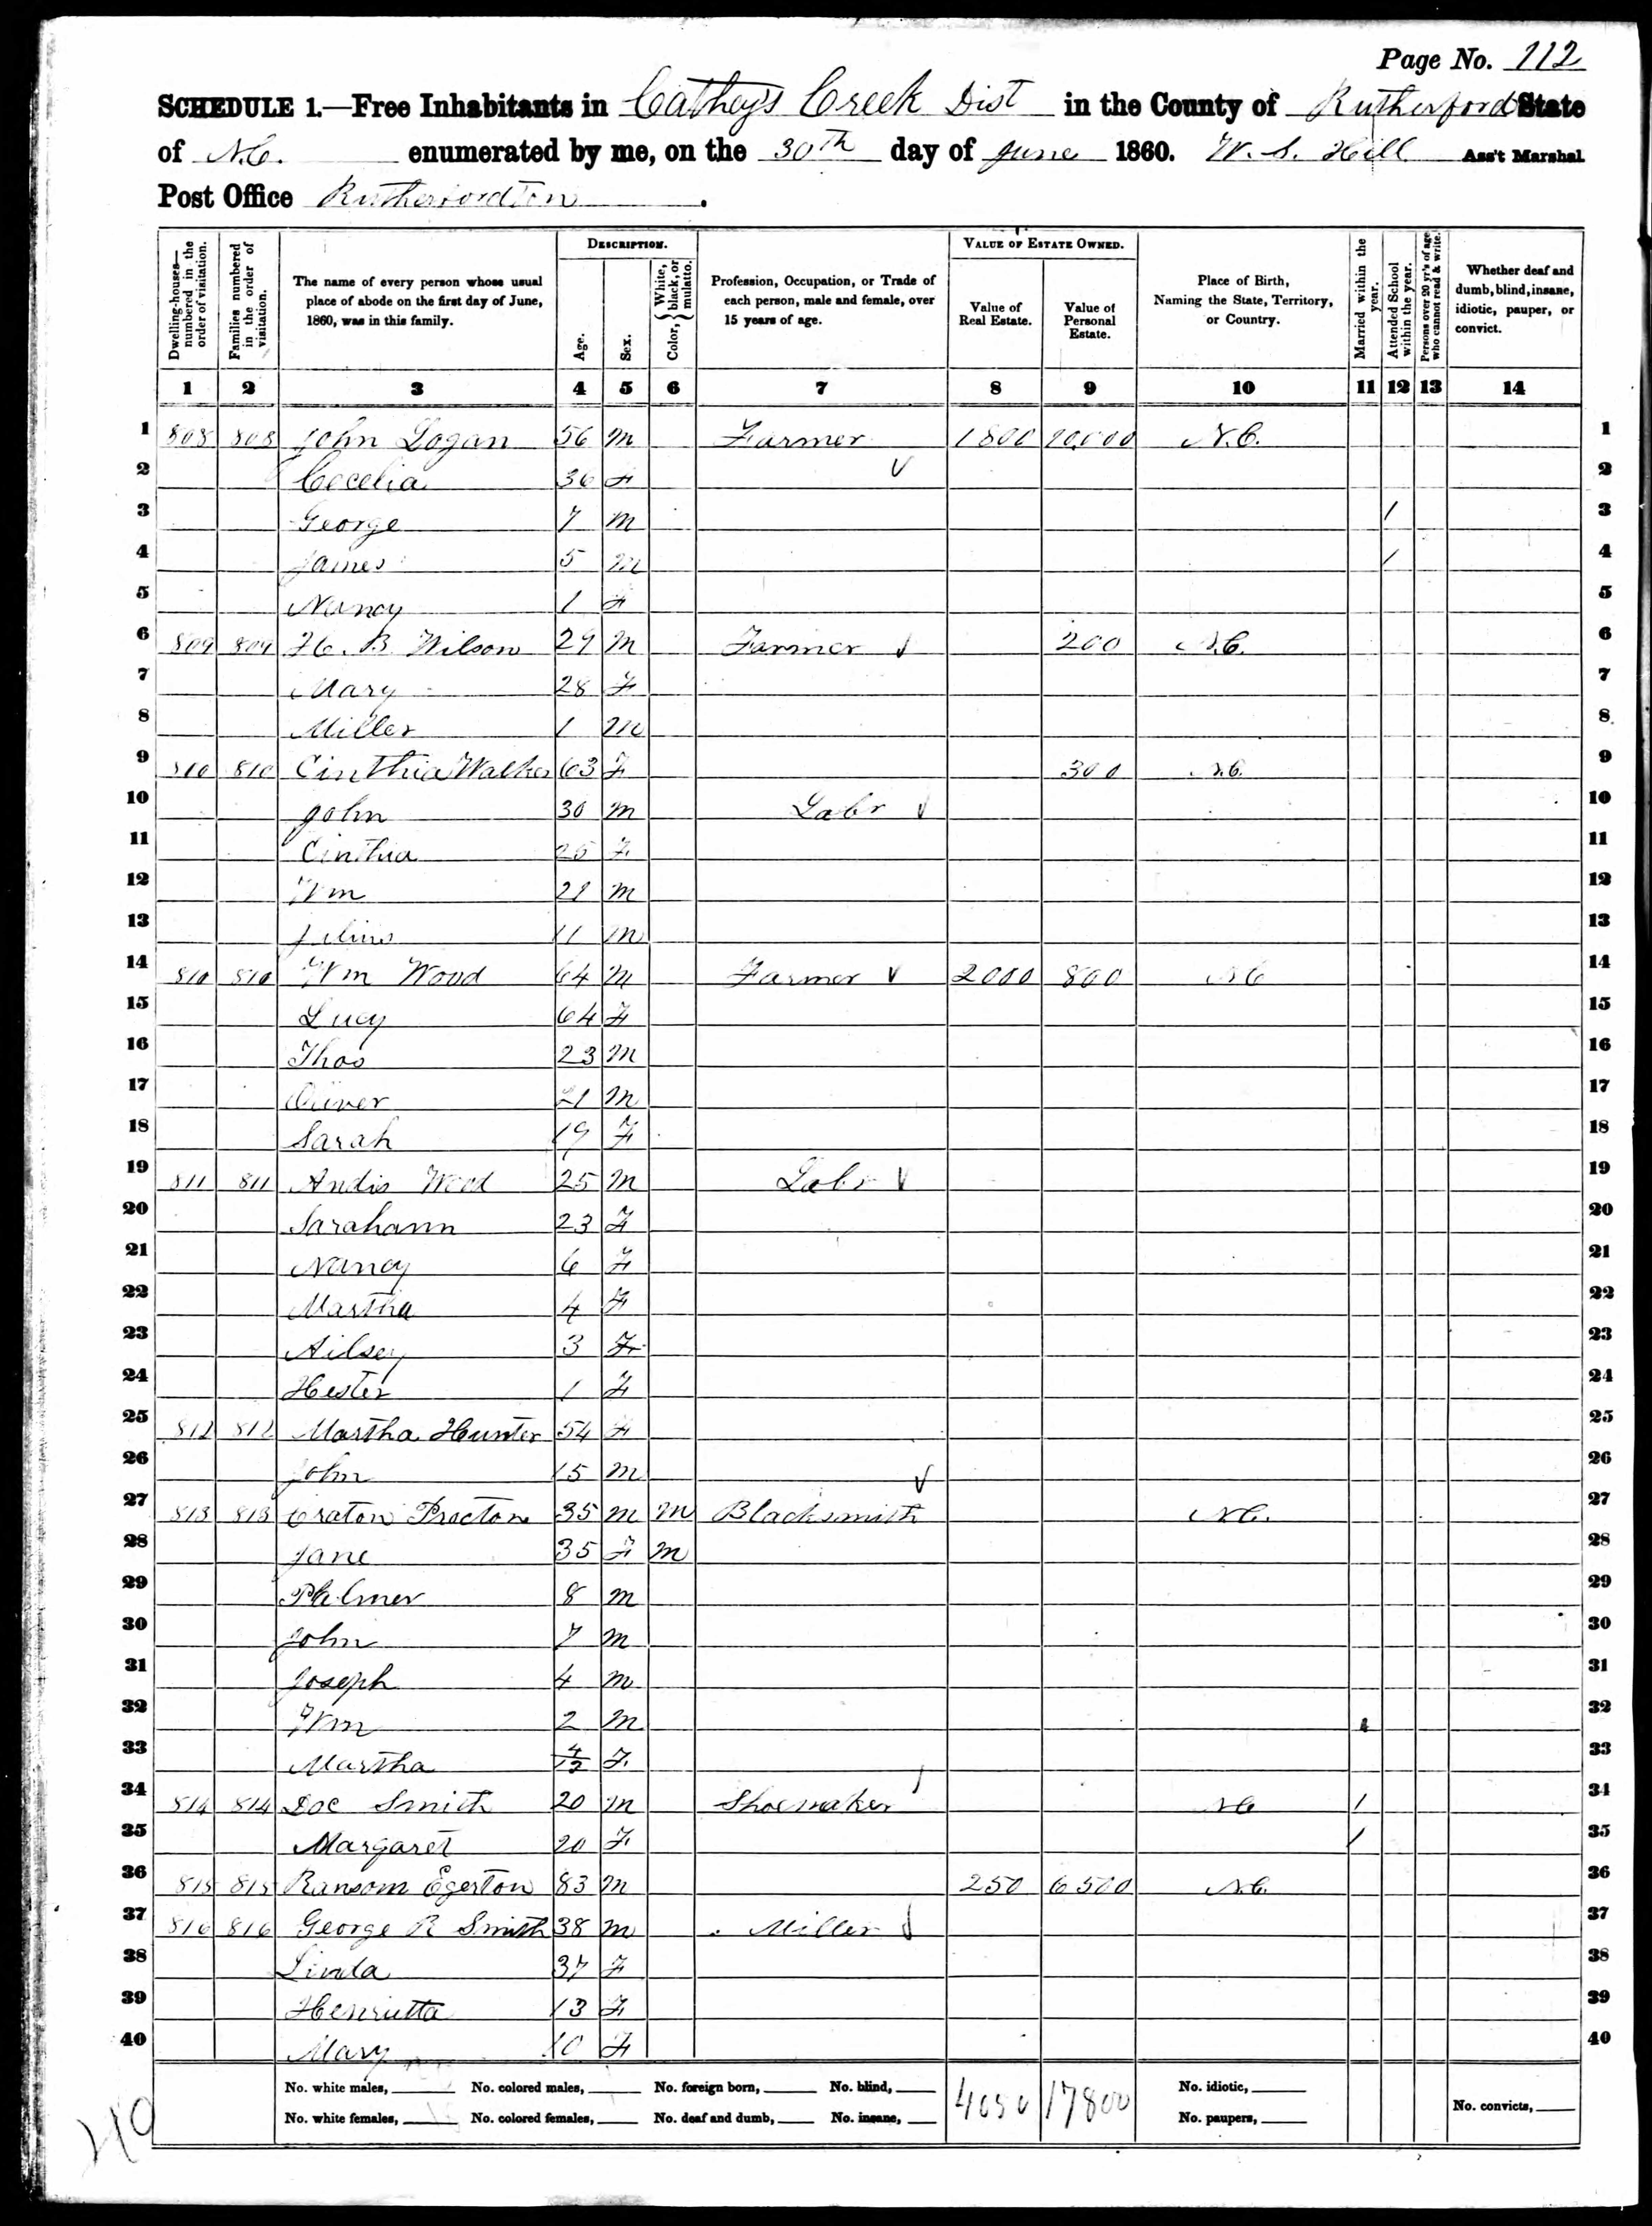 Page No. 112
SCHEDULE 1.—Free Inhabitants in Cathey's Creek Dist in the County of Rutherford State
of N.C. enumerated by me, on the 30th day of June 1860. W. S. Hill Ass't Marshal
Post Office Rutherfordton.
Dwelling-houses—numbered in the order of visitation.
Families numbered in the order of visitation.
The name of every person whose usual place of abode on the first day of June, 1860, was in this family.
DESCRIPTION.
Age.
Sex.
Color, {White, black, or mulatto.
Profession, Occupation, or Trade of each person, male and female, over 15 years of age.
VALUE OF ESTATE OWNED.
Value of Real Estate.
Value of Personal Estate.
Place of Birth, Naming the State, Territory, or Country.
Married within the year.
Attended School within the year.
Persons over 20 y'rs of age who cannot read & write.
Whether deaf and dumb, blind, insane, idiotic, pauper, or convict.
1 2 3 4 5 6 7 8 9 10 11 12 13 14
1 808 808 John Logan 56 m Farmer 1800 10,000 N.C. 1
2 Cecelia 36 F 2
3 George 7 m / 3
4 James 5 m / 4
5 Nancy 1 F 5
6 809 809 H. B. Wilson 29 m Farmer 200 N.C. 6
7 Mary 28 F 7
8 Miller 1 m 8
9 810 810 Cinthia Walker 63 F 300 N.C. 9
10 John 30 m Labr 10
11 Cinthia 25 F 11
12 Wm 21 m 12
13 11 m 13
14 810 810 Wm Wood 64 M Farmer 2000 800 N C 14
15 Lucy 64 F 15
16 Thos 23 M 16
17 Oliver 21 m 17
18 Sarah 19 F 18
19 811 811 Andis Wood 25 m Labr 19
20 Sarahann 23 F 20
21 Nancy 6 F 21
22 Martha 4 F 22
23 Ailsey 3 F 23
24 Hester 1 F 24
25 812 812 Martha Hunter 54 F 25
26 John 15 m 26
27 813 813 Craton Proctor 35 m m Blacksmith N.C. 27
28 Jane 35 F m 28
29 Palmer 8 m 29
30 John 7 m 30
31 Joseph 4 m 31
32 Wm 2 m 32
33 Martha 4/12 F 33
34 814 814 Doc Smith 20 m Shoemaker N C / 34
35 Margaret 20 F / 35
36 815 815 Ransom Egerton 83 m 250 6500 N.C. 36
37 816 816 George R Smith 38 m Miller 37
38 Linda 37 F 38
39 Henrietta 13 F 39
40 Mary 10 F 40
No. white males, No. colored males, No. foreign born, No. blind, 4050 17800 No. idiotic,
No. white females, No. colored females, No. deaf and dumb, No. insane, No. paupers, No. convicts,
40